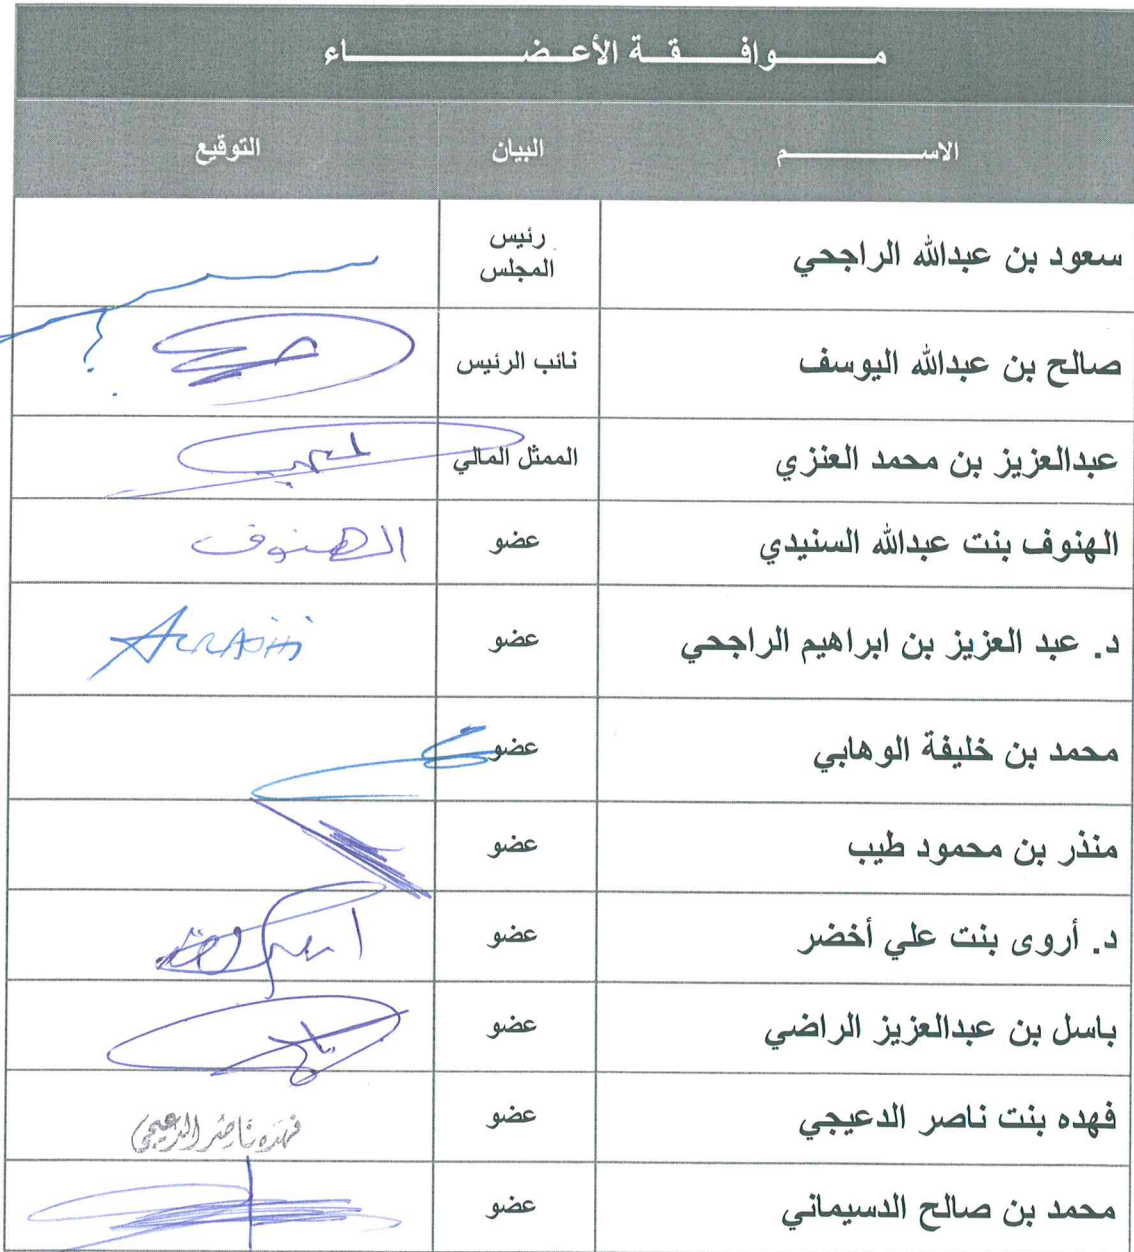 مـــوافـــقـــة الأعـــضـــــاء
الاســـــــم البيان التوقيع
سعود بن عبدالله الراجحي رئيس المجلس
صالح بن عبدالله اليوسف نائب الرئيس
عبدالعزيز بن محمد العنزي الممثل المالي
الهنوف بنت عبدالله السنيدي عضو الهنوف
د. عبد العزيز بن ابراهيم الراجحي عضو ALRAJHI
محمد بن خليفة الوهابي عضو
منذر بن محمود طيب عضو
د. أروى بنت علي أخضر عضو
باسل بن عبدالعزيز الراضي عضو
فهده بنت ناصر الدعيجي عضو فهده ناصر الدعيجي
محمد بن صالح الدسيماني عضو